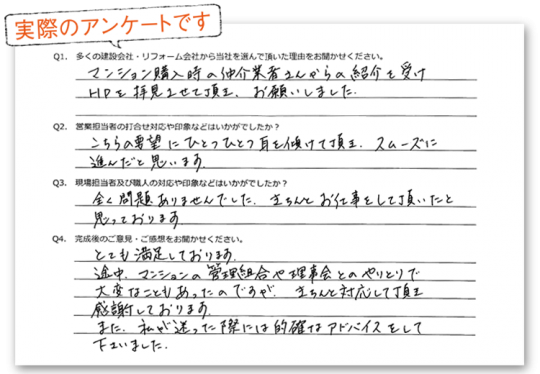 実際のアンケートです
Q1. 多くの建設会社・リフォーム会社から当社を選んで頂いた理由をお聞かせください。
マンション購入時の仲介業者さんからの紹介を受け
HPを拝見させて頂き、お願いしました。
Q2. 営業担当者の打合せ対応や印象などはいかがでしたか？
こちらの要望にひとつひとつ耳を傾けて頂き、スムーズに
進んだと思います
Q3. 現場担当者及び職人の対応や印象などはいかがでしたか？
全く問題ありませんでした。きちんとお仕事をして頂いたと
思っております
Q4. 完成後のご意見・ご感想をお聞かせください。
とても満足しております。
途中、マンションの管理組合や理事会とのやりとりで
大変なこともあったのですが、きちんと対応して頂き
感謝しております。
また、私が迷った際には的確なアドバイスをして
下さいました。